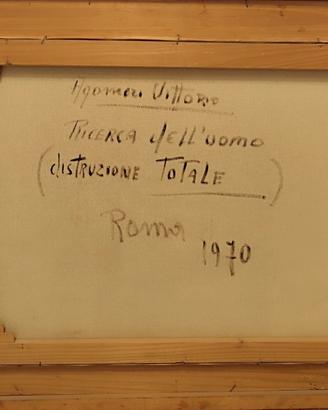 Agomeri Vittorio
RICERCA dell'uomo
(distruzione TOTALE)
Roma
1970